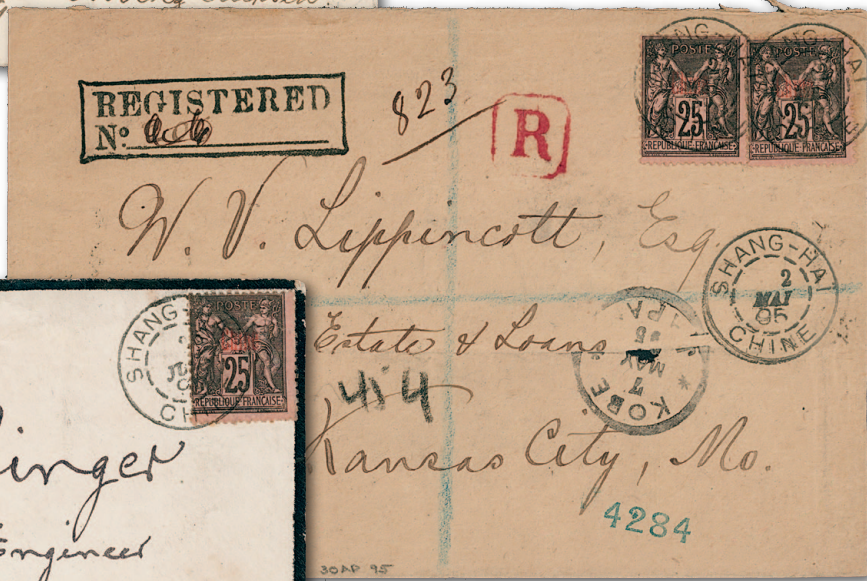 REGISTERED
No.
823
R
POSTE
25
REPUBLIQUE FRANÇAISE
POSTE
25
REPUBLIQUE FRANÇAISE
W. V. Lippincott, Esq.
SHANG-HAI
2
MAI
95
CHINE
Estate & Loans
KOBE
7
MAY
95
414
Kansas City, Mo.
4284
30 AP 95
SHANG
CHI
POSTE
25
REPUBLIQUE FRANÇAISE
inger
Engineer